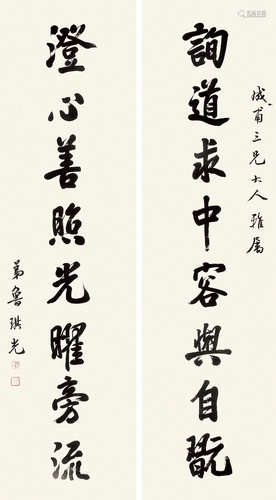 成甫三兄大人雅属
詢道求中容與自翫
澄心善照光曜旁流
弟魯琪光